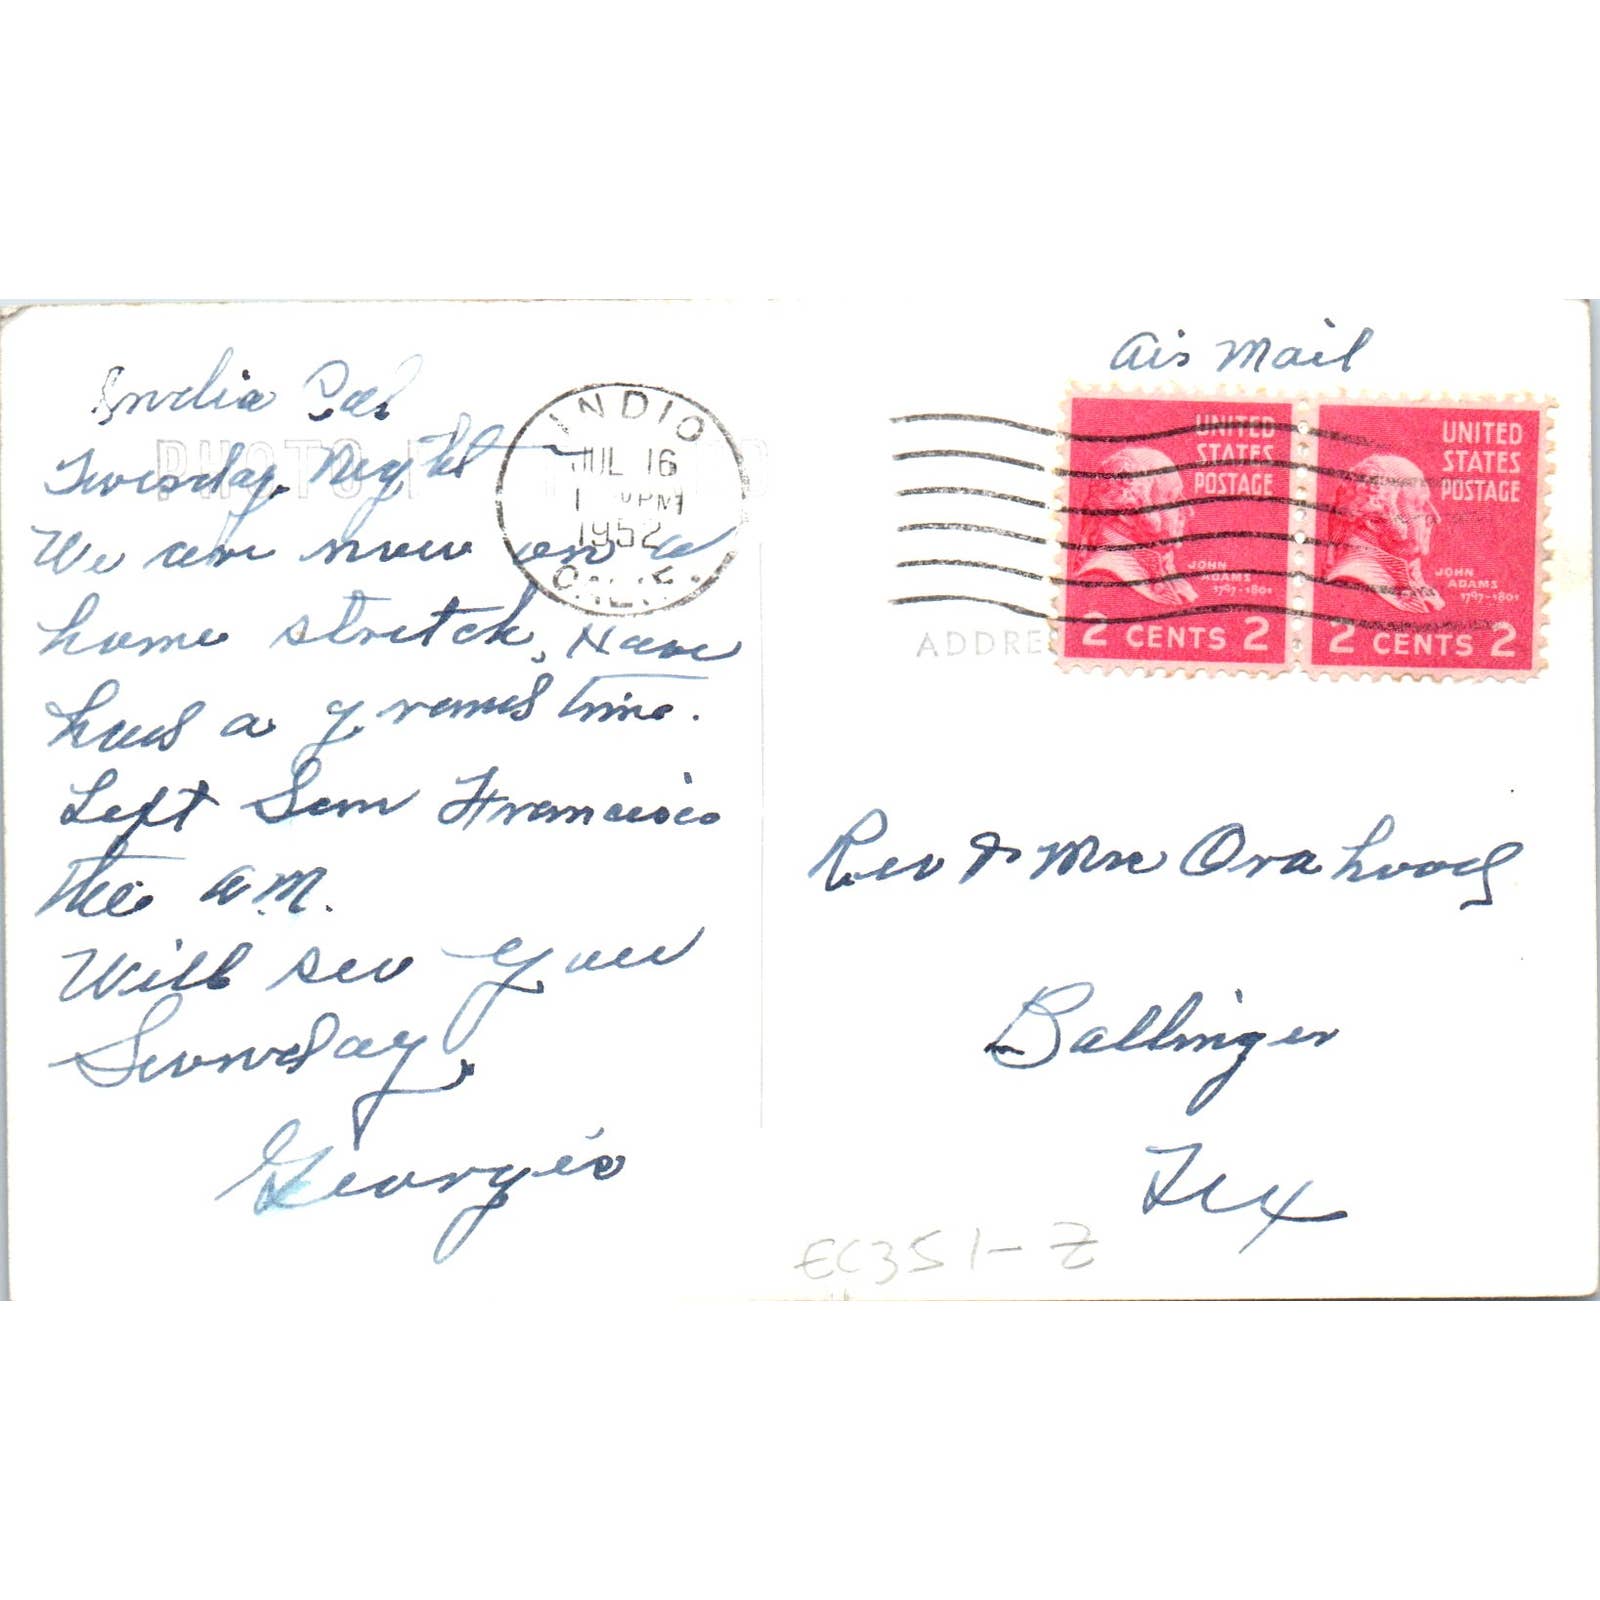 Air Mail
India Cal
Tuesday Night
We are now on a
home stretch, Have
had a grand time.
Left San Francisco
this a.m.
Will see you
Sunday,
Georgie
INDIO
JUL 16
PM
1952
CALIF.
UNITED
STATES
POSTAGE
JOHN
ADAMS
1797-1801
2 CENTS 2
UNITED
STATES
POSTAGE
JOHN
ADAMS
1797-1801
2 CENTS 2
ADDRE
Rev & Mrs Orahood
Ballinger
Tex
EC351-Z